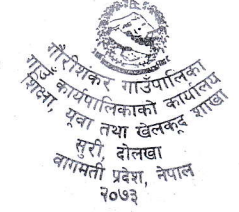 गौरीशंकर गाउँपालिका
गाउँ कार्यपालिकाको कार्यालय
शिक्षा, युवा तथा खेलकूद शाखा
सुरी, दोलखा
वागमती प्रदेश, नेपाल
२०७३